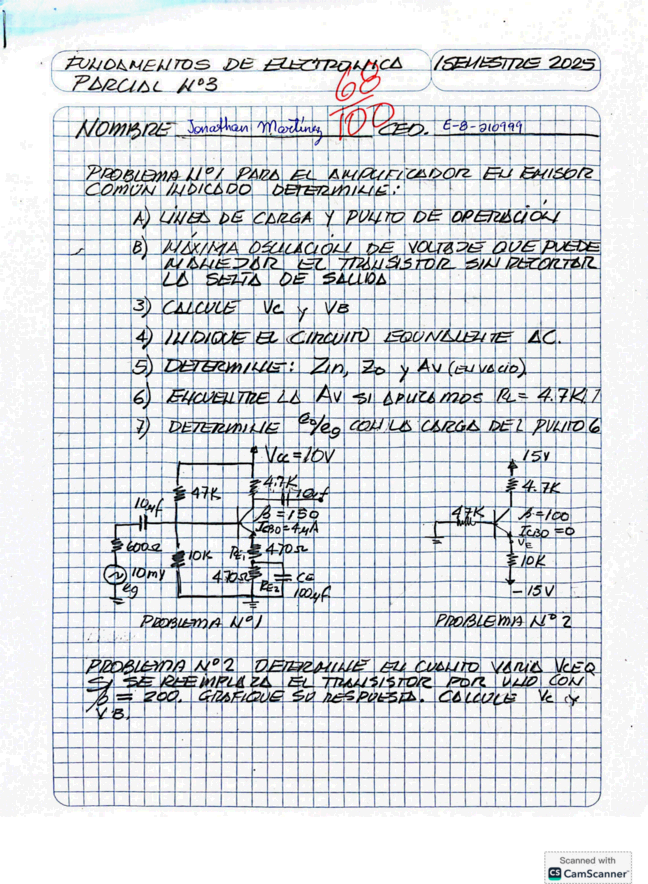 FUNDAMENTOS DE ELECTRONICA
I SEMESTRE 2025
PARCIAL Nº3
68/100
NOMBRE Jonathan Martínez CED. E-8-210999
PROBLEMA Nº1 PARA EL AMPLIFICADOR EN EMISOR
COMÚN INDICADO DETERMINE:
A) LINEA DE CARGA Y PUNTO DE OPERACIÓN
B) MÁXIMA OSCILACIÓN DE VOLTAJE QUE PUEDE
MANEJAR EL TRANSISTOR SIN RECORTAR
LA SEÑAL DE SALIDA
3) CALCULE Vc y VB
4) INDIQUE EL CIRCUITO EQUIVALENTE AC.
5) DETERMINE: Zin, Zo y AV (EN VACIO)
6) ENCUENTRE LA AV SI APLICAMOS RL = 4.7K
7) DETERMINE eo/eg CON LA CARGA DEL PUNTO 6
Vcc = 10V
4.7K
10μf
47K
10μf
β = 150
ICBO = 4μA
600Ω
10K
RE1
470Ω
10mV
eg
470Ω
RE2
CE
100μf
PROBLEMA Nº1
15V
4.7K
47K
β = 100
ICBO = 0
VE
10K
-15V
PROBLEMA Nº 2
PROBLEMA Nº2 DETERMINE EN CUANTO VARIA VCEQ
SI SE REEMPLAZA EL TRANSISTOR POR UNO CON
β = 200. GRAFIQUE SU RESPUESTA. CALCULE Vc y
VB.
Scanned with
CS CamScanner